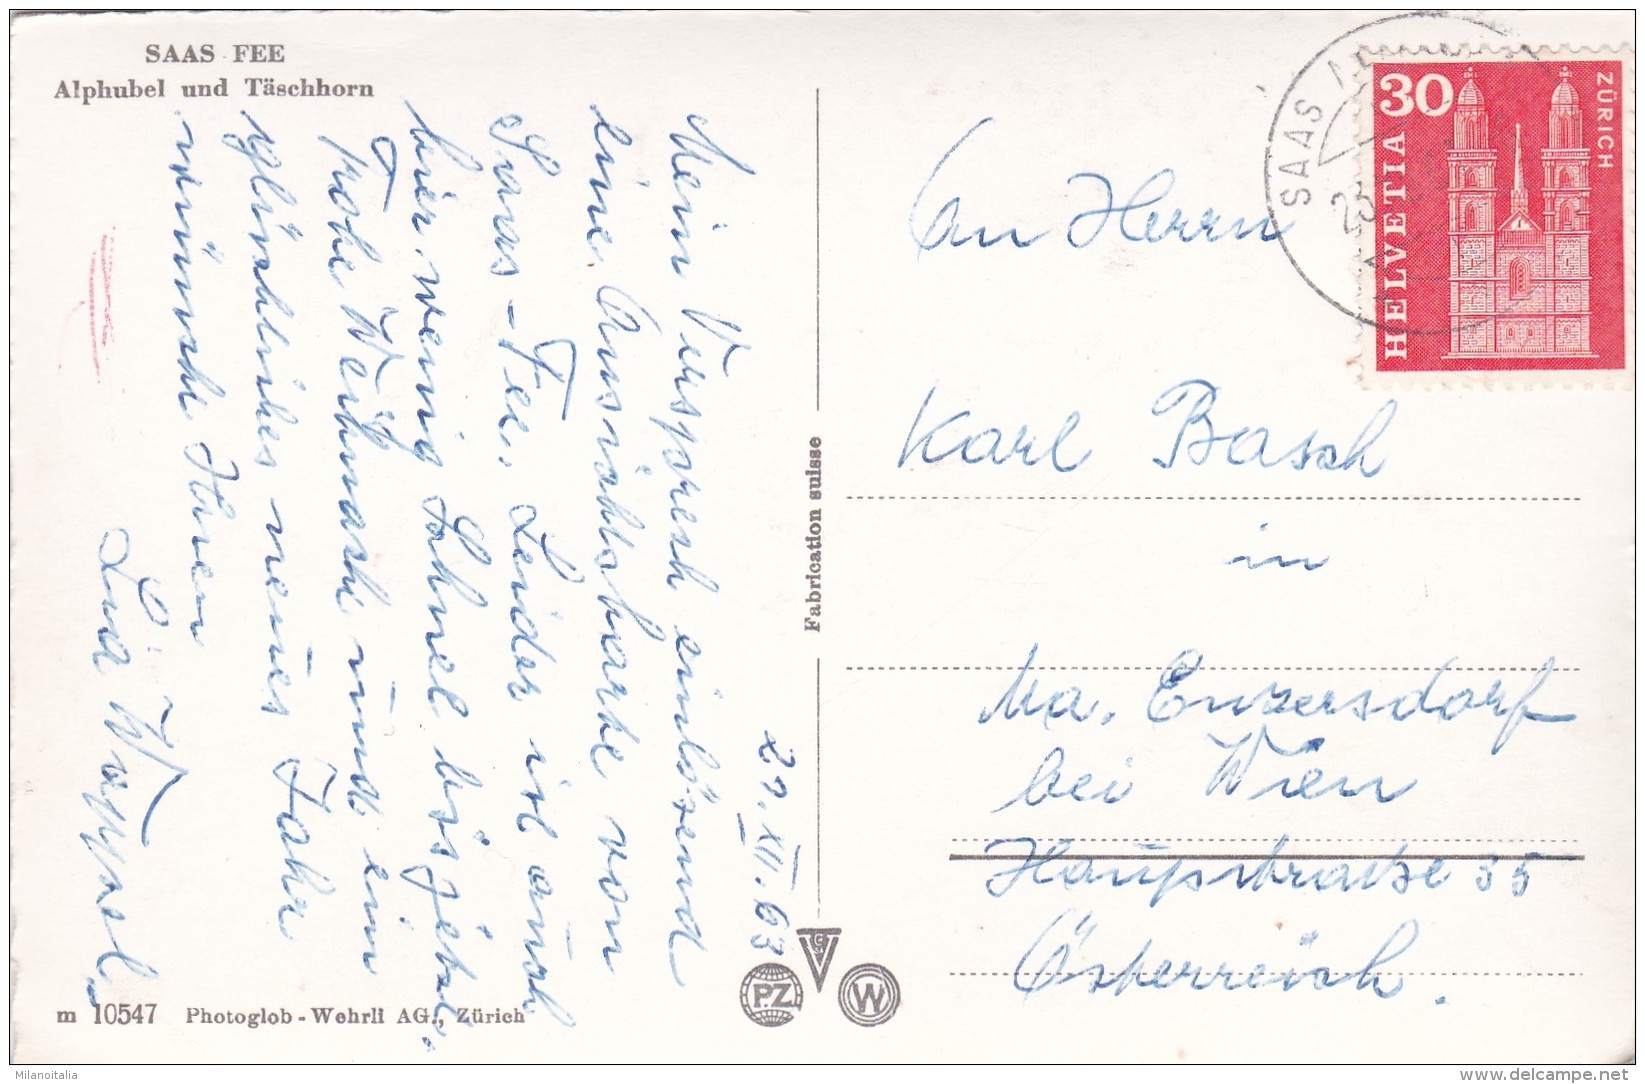 SAAS FEE
Alphubel und Täschhorn
21. XII. 63
Mein Versprech einlösend
eine Ansichtskarte von
Saas-Fee. Leider ist auch
hier wenig Schnee bis jetzt.
Frohe Weihnacht und ein
glückliches neues Jahr
wünscht Ihnen
m 10547 Photoglob-Wehrli AG., Zürich
Fabrication suisse
P.Z.
W
SAAS
30
HELVETIA
ZÜRICH
An Herrn
Karl Basch
in
Ma. Enzersdorf
bei Wien
Hauptstrasse 35
Österreich.
Milanoitalia
delcampe.net